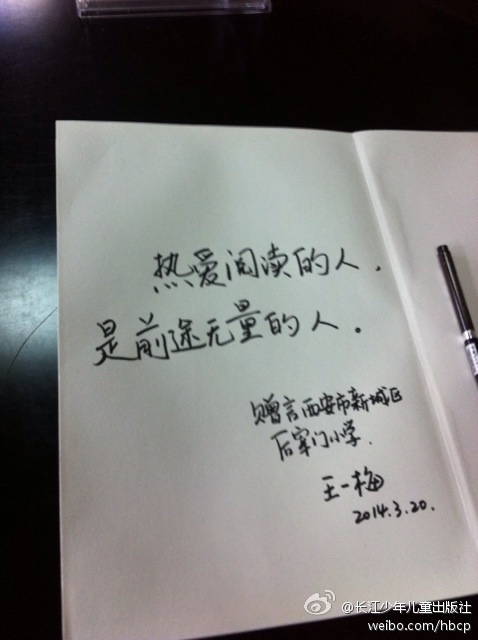 热爱阅读的人，
是前途无量的人。
赠言西安市新城区
后宰门小学.
王一梅
2014.3.20.
@长江少年儿童出版社
weibo.com/hbcp